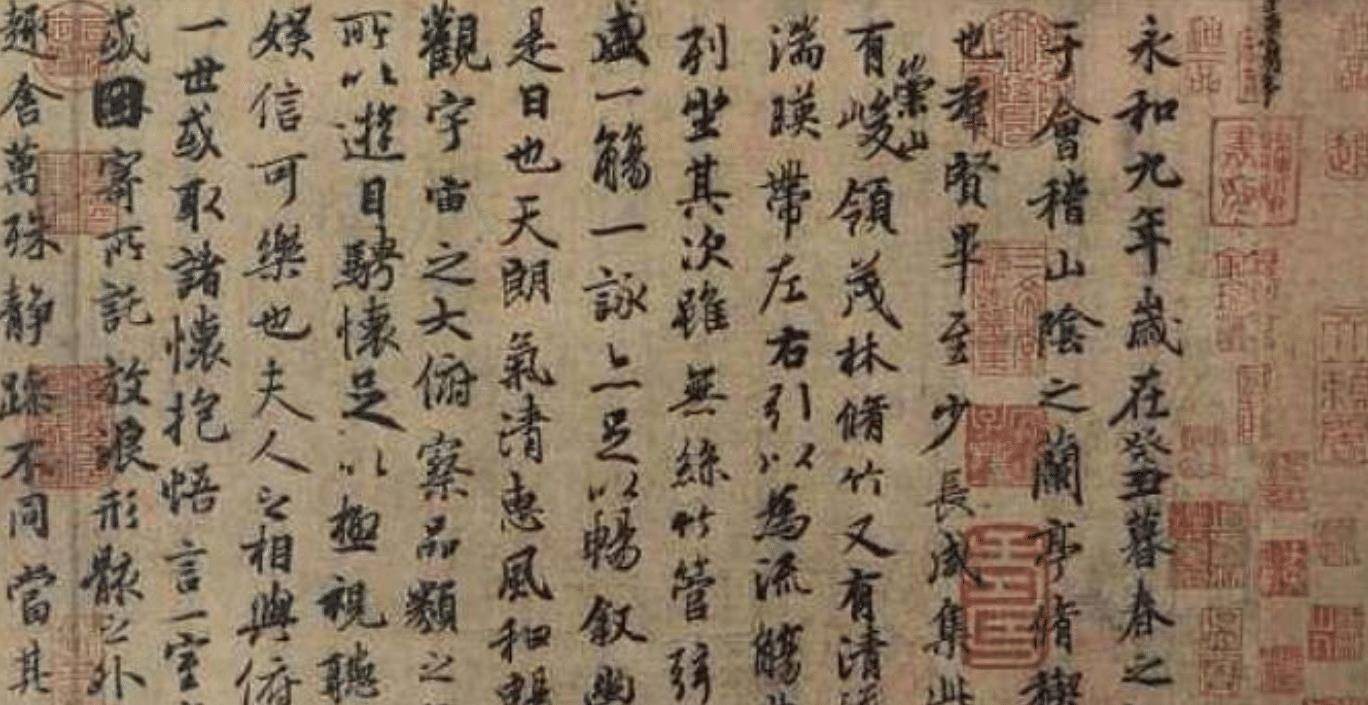 永和九年歲在癸丑暮春之
于會稽山陰之蘭亭脩禊
也羣賢畢至少長咸集此
崇山
有峻領茂林脩竹又有清流
湍暎帶左右引以為流觴
列坐其次雖無絲竹管弦
盛一觴一詠亦足以暢叙幽
是日也天朗氣清惠風和暢
觀宇宙之大俯察品類之
所以遊目騁懷足以極視聽
娛信可樂也夫人之相與俯
一世或取諸懷抱悟言一室
或因寄所託放浪形骸之外
趣舍萬殊静躁不同當其